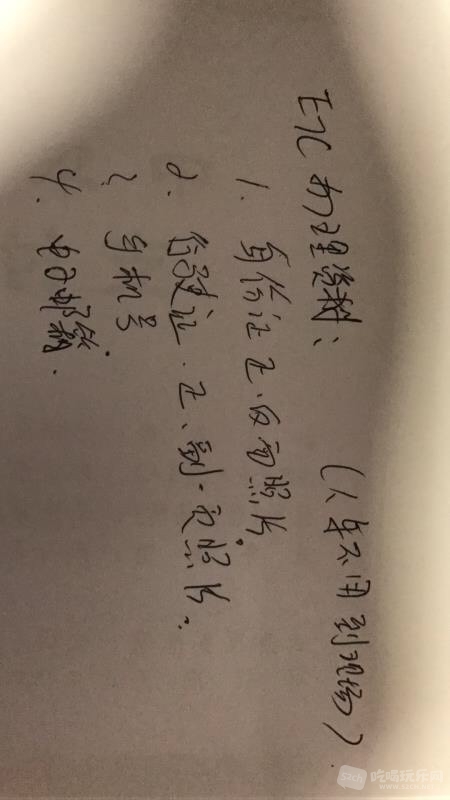 ETC办理资料：（人车不用到现场）
1. 身份证正.反面照片
2. 行驶证.正、副.页照片。
3 手机号
4. 电子邮箱.
吃喝玩乐网